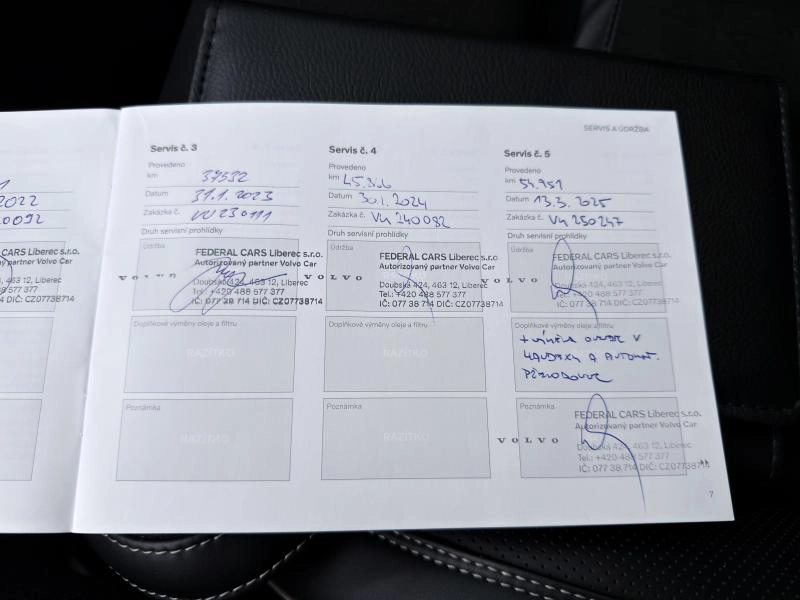 2022
SERVIS A ÚDRŽBA
Servis č. 3
Provedeno
km 37532
Datum 31.1.2023
Zakázka č. VU230111
Druh servisní prohlídky
Údržba
FEDERAL CARS Liberec s.r.o.
Autorizovaný partner Volvo Car
VOLVO
Doubská 424, 463 12, Liberec
Tel.: +420 488 577 377
IČ: 077 38 714 DIČ: CZ07738714
Doplňkové výměny oleje a filtru
RAZÍTKO
Poznámka
RAZÍTKO
Servis č. 4
Provedeno
km 45.366
Datum 30.1.2024
Zakázka č. VU 240092
Druh servisní prohlídky
Údržba
FEDERAL CARS Liberec s.r.o.
Autorizovaný partner Volvo Car
VOLVO
Doubská 424, 463 12, Liberec
Tel.: +420 488 577 377
IČ: 077 38 714 DIČ: CZ07738714
Doplňkové výměny oleje a filtru
RAZÍTKO
Poznámka
RAZÍTKO
Servis č. 5
Provedeno
km 54.951
Datum 13.3.2025
Zakázka č. VU 250247
Druh servisní prohlídky
Údržba
FEDERAL CARS Liberec s.r.o.
Autorizovaný partner Volvo Car
VOLVO
Doubská 424, 463 12, Liberec
Tel.: +420 488 577 377
IČ: 077 38 714 DIČ: CZ07738714
Doplňkové výměny oleje a filtru
+ VÝMĚNA OLEJE V
HALDEXU A AUTOMAT.
PŘEVODOVCE
Poznámka
FEDERAL CARS Liberec s.r.o.
Autorizovaný partner Volvo Car
VOLVO
Doubská 424, 463 12, Liberec
Tel.: +420 488 577 377
IČ: 077 38 714 DIČ: CZ07738714
7